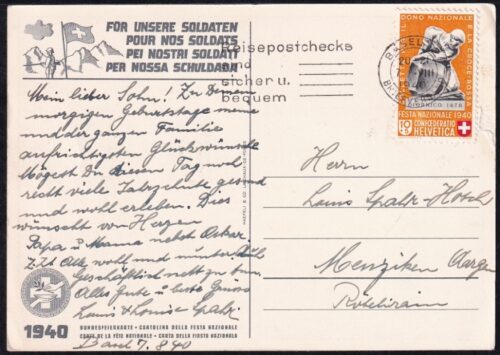 FÜR UNSERE SOLDATEN
POUR NOS SOLDATS
PEI NOSTRI SOLDATI
PER NOSSA SCHULDADA
Reisepostchecks
sind
sicher u.
bequem
BASEL
BRIEFVERSAND
PRO DONO NAZIONALE E LA CROCE ROSSA
GIORNICO 1478
FESTA NAZIONALE 1940
10 CONFOEDERATIO
HELVETICA
Mein lieber Sohn! Zu Deinem
morgigen Geburtstage meine
und der ganzen Familie
aufrichtigsten Glückwünsche
Mögest Du diesen Tag noch
recht viele Jahrzehnte gesund
und wohl erleben. Dies
wünscht von Herzen
Papa u Mama nebst Oskar
Z. Zt. Alle wohl und munter, Auch
Geschäftlich nett zu tun.
Alles Gute u. beste Grüsse
Louis & Louise Spahr.
Herrn
Louis Spahr-Hotsch
Menziken Aargau
1940
BUNDESFEIERKARTE • CARTOLINA DELLA FESTA NAZIONALE
CARTE DE LA FÊTE NATIONALE • CARTA DELLA FIESTA NAZIONALA
Basel 7.8.40